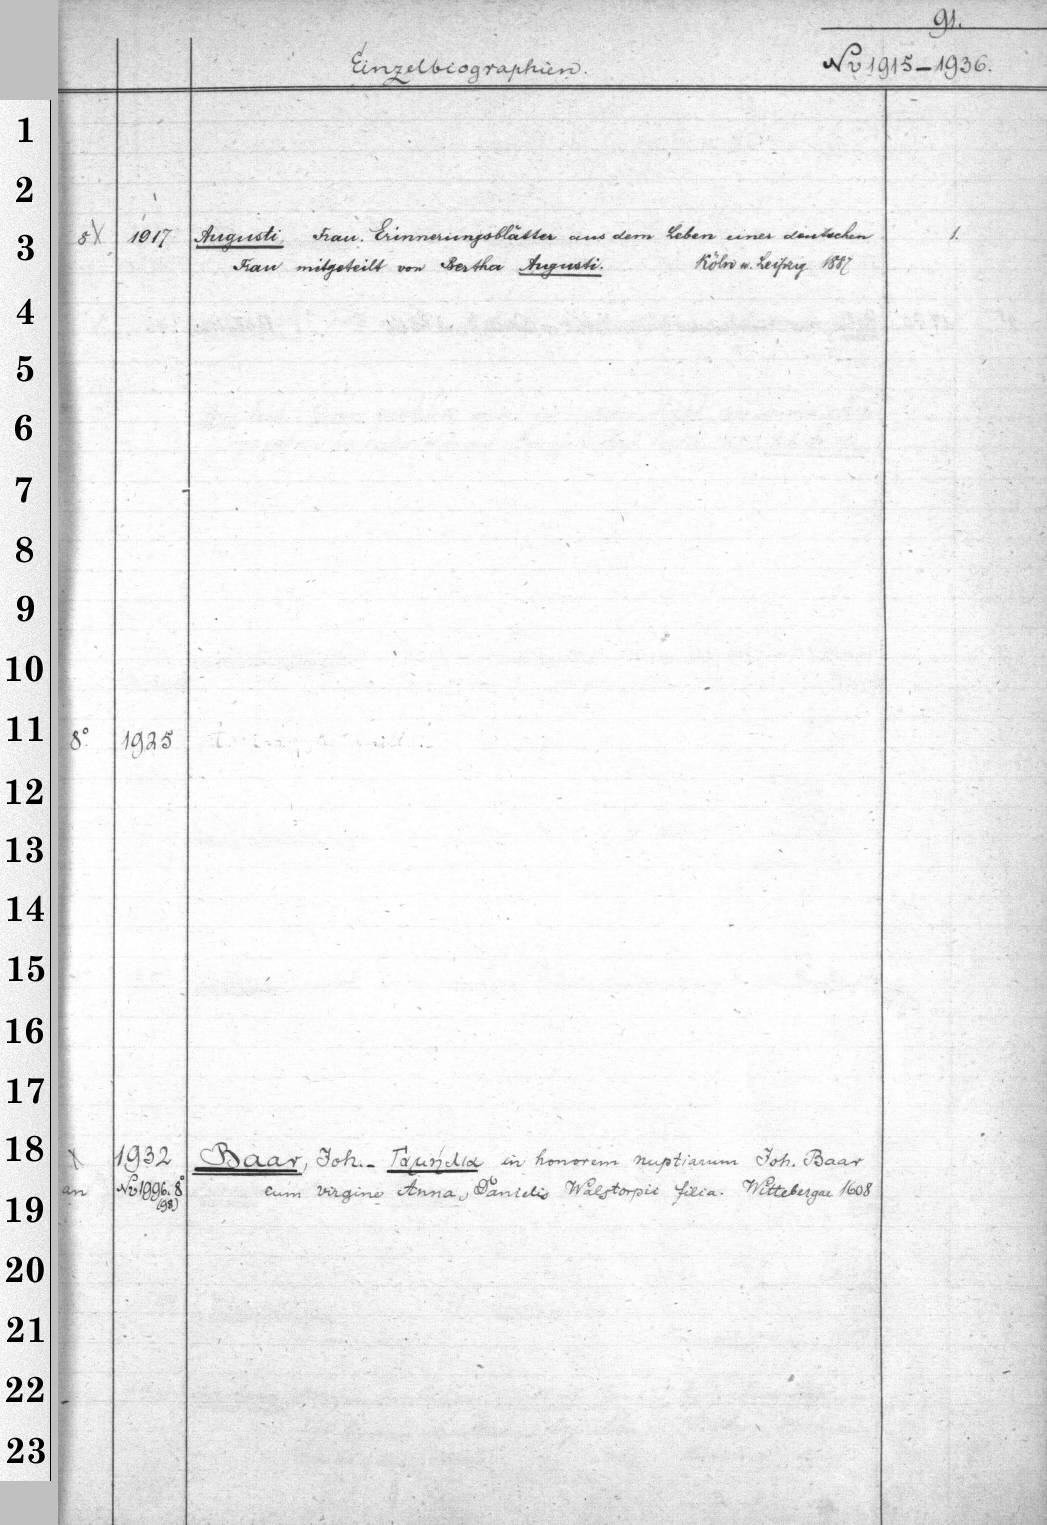 91.
Einzelbiographien.
Nv 1915-1936.
1
2
3
8 X 1917 Augusti, Frau. Erinnerungsblätter aus dem Leben einer deutschen 1.
Frau mitgeteilt von Bertha Augusti. Köln u. Leipzig 1887
4
5
6
7
8
9
10
11
8° 1925
12
13
14
15
16
17
18
X 1932 Baar, Joh. - Γαμήλια in honorem nuptiarum Joh. Baar
an Nv 1996. 8° cum virgine Anna, Danielis Walstorpii filia. Wittebergae 1608
(98)
19
20
21
22
23